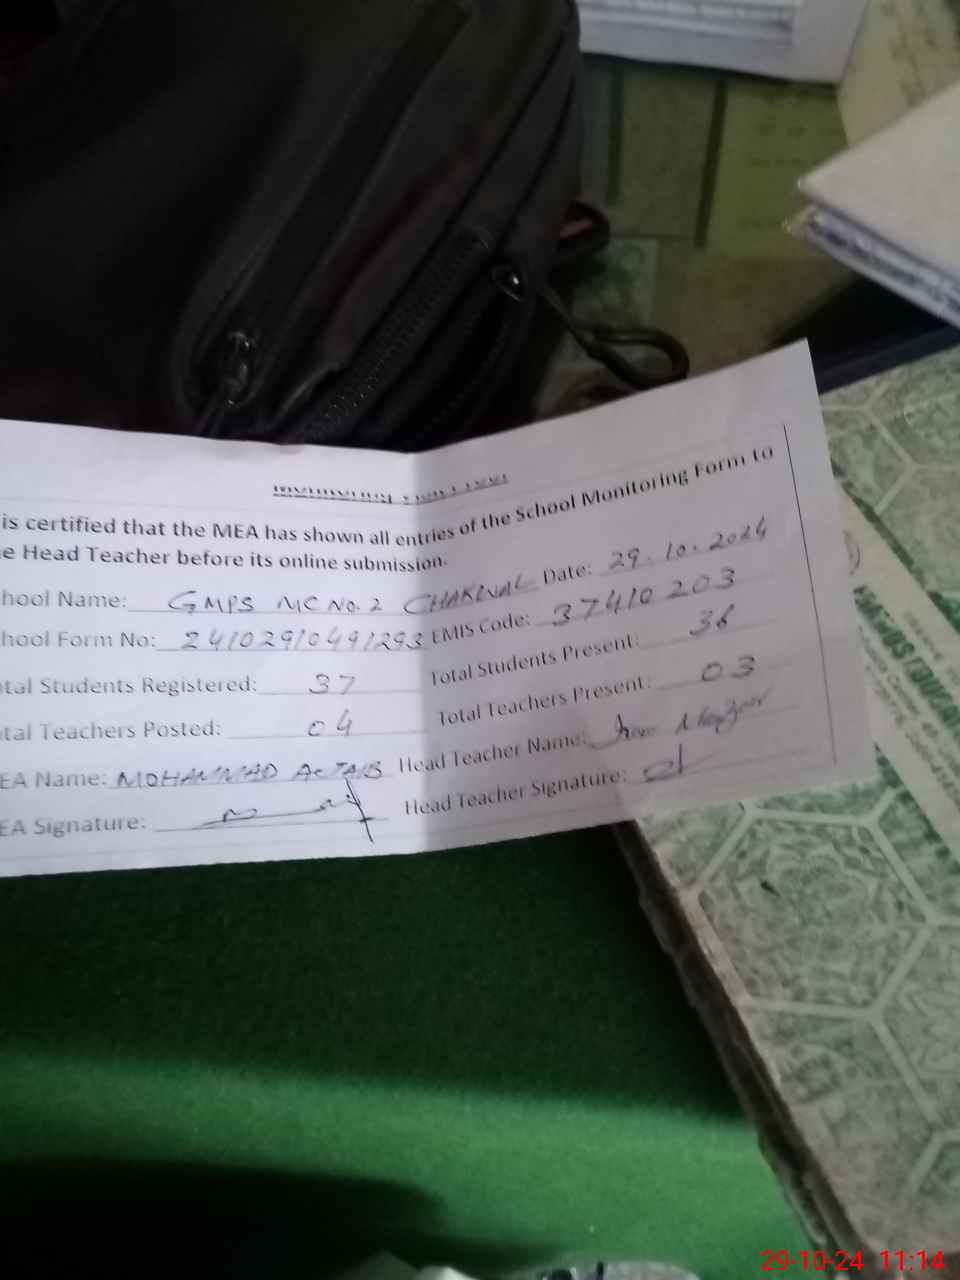 is certified that the MEA has shown all entries of the School Monitoring Form to
e Head Teacher before its online submission.
hool Name: GMPS MC No. 2 CHAKWAL Date: 29.10.2024
hool Form No: 24102910491293 EMIS Code: 37410203
tal Students Registered: 37 Total Students Present: 36
tal Teachers Posted: 04 Total Teachers Present: 03
EA Name: MOHAMMAD Head Teacher Name:
EA Signature: Head Teacher Signature:
29-10-24 11:14